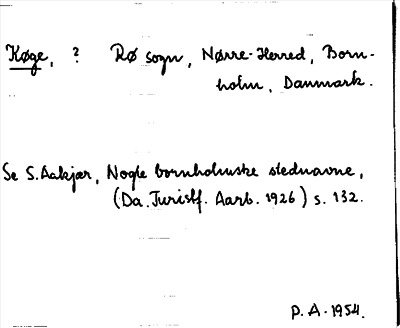 Køge, ? Rø sogn, Nørre-Herred, Born-
holm, Danmark.
Se S. Aakjær, Nogle bornholmske stednavne,
(Da. Turistf. Aarb. 1926) s. 132.
P.A. 1954.